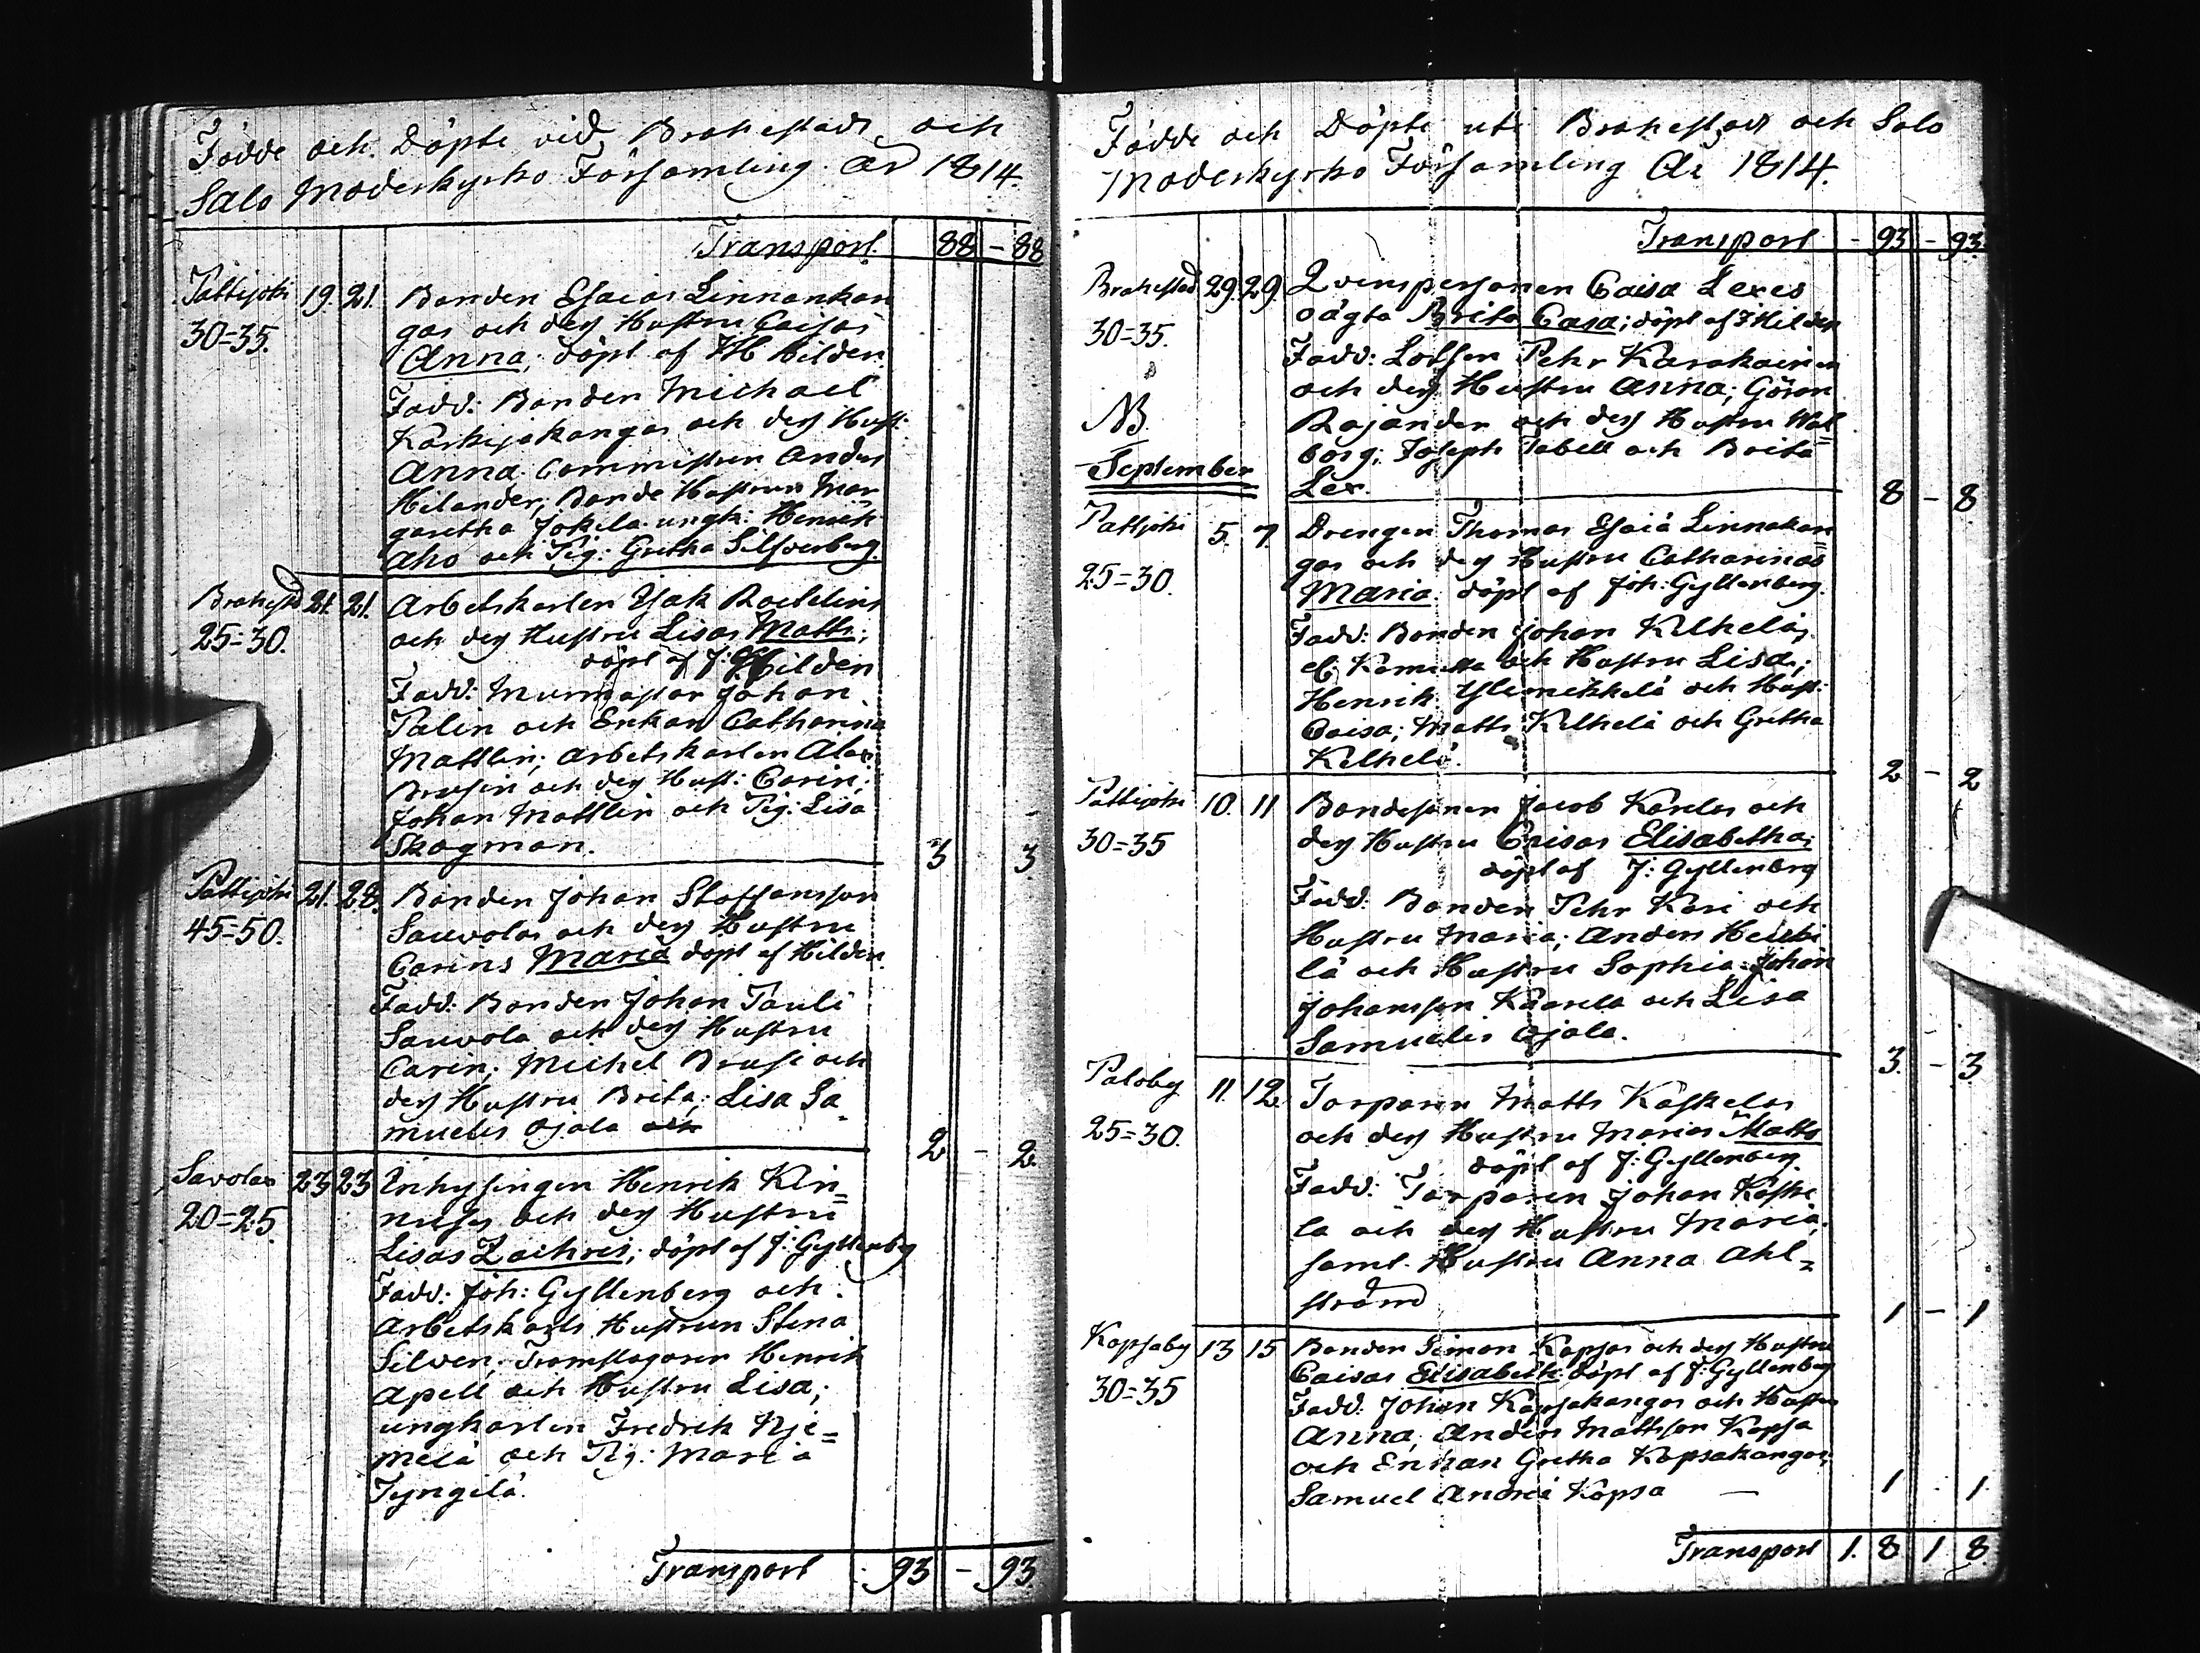 Födde och Döpte vid Brahestads och
Salo Moderkyrko Församling år 1814.
Transport 88 - 88
Pattijoki 19. 21. Bonden Esaias Linnankan
30=35. gas och des Hustru Caisas
Anna; döpt af J H Hilden
Fadd: Bonden Michael
Karhujokangas och des Hust:
Anna. Anders
Hilander; Bonde Hustrun Mar
garetha Jokela. ungk: Henrik
Aho och Pig: Gretha Silfverberg.
Brahestad 21. 21. Arbetskarlen Esak Roetelins
25=30. och des Hustru Lisas Matts;
döpt af J: Hilden
Fadd: Murmästar Johan
Palin och Enkan Catharina
Mattlin; Arbetskarlen Abr:
Brusin och des Hust: Carin;
Johan Mattlin och Pig: Lisa
Skogman. 3 3
Pattijoki 21. 28. Bonden Johan Staffansson
45=50. Sauvolas och des Hustru
Carins Maria döpt af Hilden.
Fadd: Bonden Johan Pauli
Sauvola och des Hustru
Carin; Michel Bruse och
des Hustru Brita; Lisa Sa=
muelis Ojala och 2 - 2.
Savolax 23 23 Inhysingen Henrik Kin=
20=25. och des Hustru
Lisas Zachris; döpt af J: Gyllenberg
Fadd: Joh: Gyllenberg och
Arbetskarls Hustrun Stena
Silven; Tromslagaren Henrik
Apell och Hustru Lisa;
ungkarlen Fredrik Nje=
melä och Pig: Maria
Tyngilä.
Transport : 93 - 93
Födde och Döpte uti Brahestad och Salo
Moderkyrko Församling År 1814.
Transport - 93 - 93.
Brahestad 29. 29. Qvinspersonen Caisa Lexes
30=35. oägta Brita Casa; döpt af J Hilden
Fadd: Lotsen Pehr Karakainen
och des Hustru Anna; Göran
NB. Rajander och des Hustru Wal=
borg; Joseph Tabell och Brita
September Lex. 8 - 8
Pattijoki 5. 7. Drengen Thomas Esaiä Linnakan=
25=30. gas och des Hustru Catharinas
Maria döpt af Joh: Gyllenberg.
Fadd: Bonden Johan Kelhelä,
och Hustru Lisa;
Henrik Ylimikkelä och Hust:
Caisa; Matts Kelhelä och Gretha
Kelhelä. 2 - 2
Pattijoki 10. 11 Bondesonen Jacob Karelas och
30=35 des Hustru Brisas Elisabetha;
döpt af J: Gyllenberg
Fadd: Bonden Pehr Kari och
Hustru Maria; Anders Heikki
lä och Hustru Sophia. Johan
Johansson Kaarela och Lisa
Samuelis Ojala. 3. - 3
Paloby 11. 12. Torparn Matts Käskelas
25=30. och des Hustru Marias Matts
döpt af J: Gyllenberg.
Fadd: Torparen Johan Käske
la och des Hustru Maria,
samt Hustru Anna Ahl=
ström 1 - 1
Kopsaby 13 15 Bonden Simon Kopsas och des Hustru
30=35 Caisas Elisabeth; döpt af J: Gyllenberg
Fadd: Johan Kopsakangas och Hustru
Anna; Anders Mattsson Kopsa
och Enkan Gretha Kopsakangas;
Samuel Andreä Kopsa — 1 - 1
Transport 1. 8 1 8